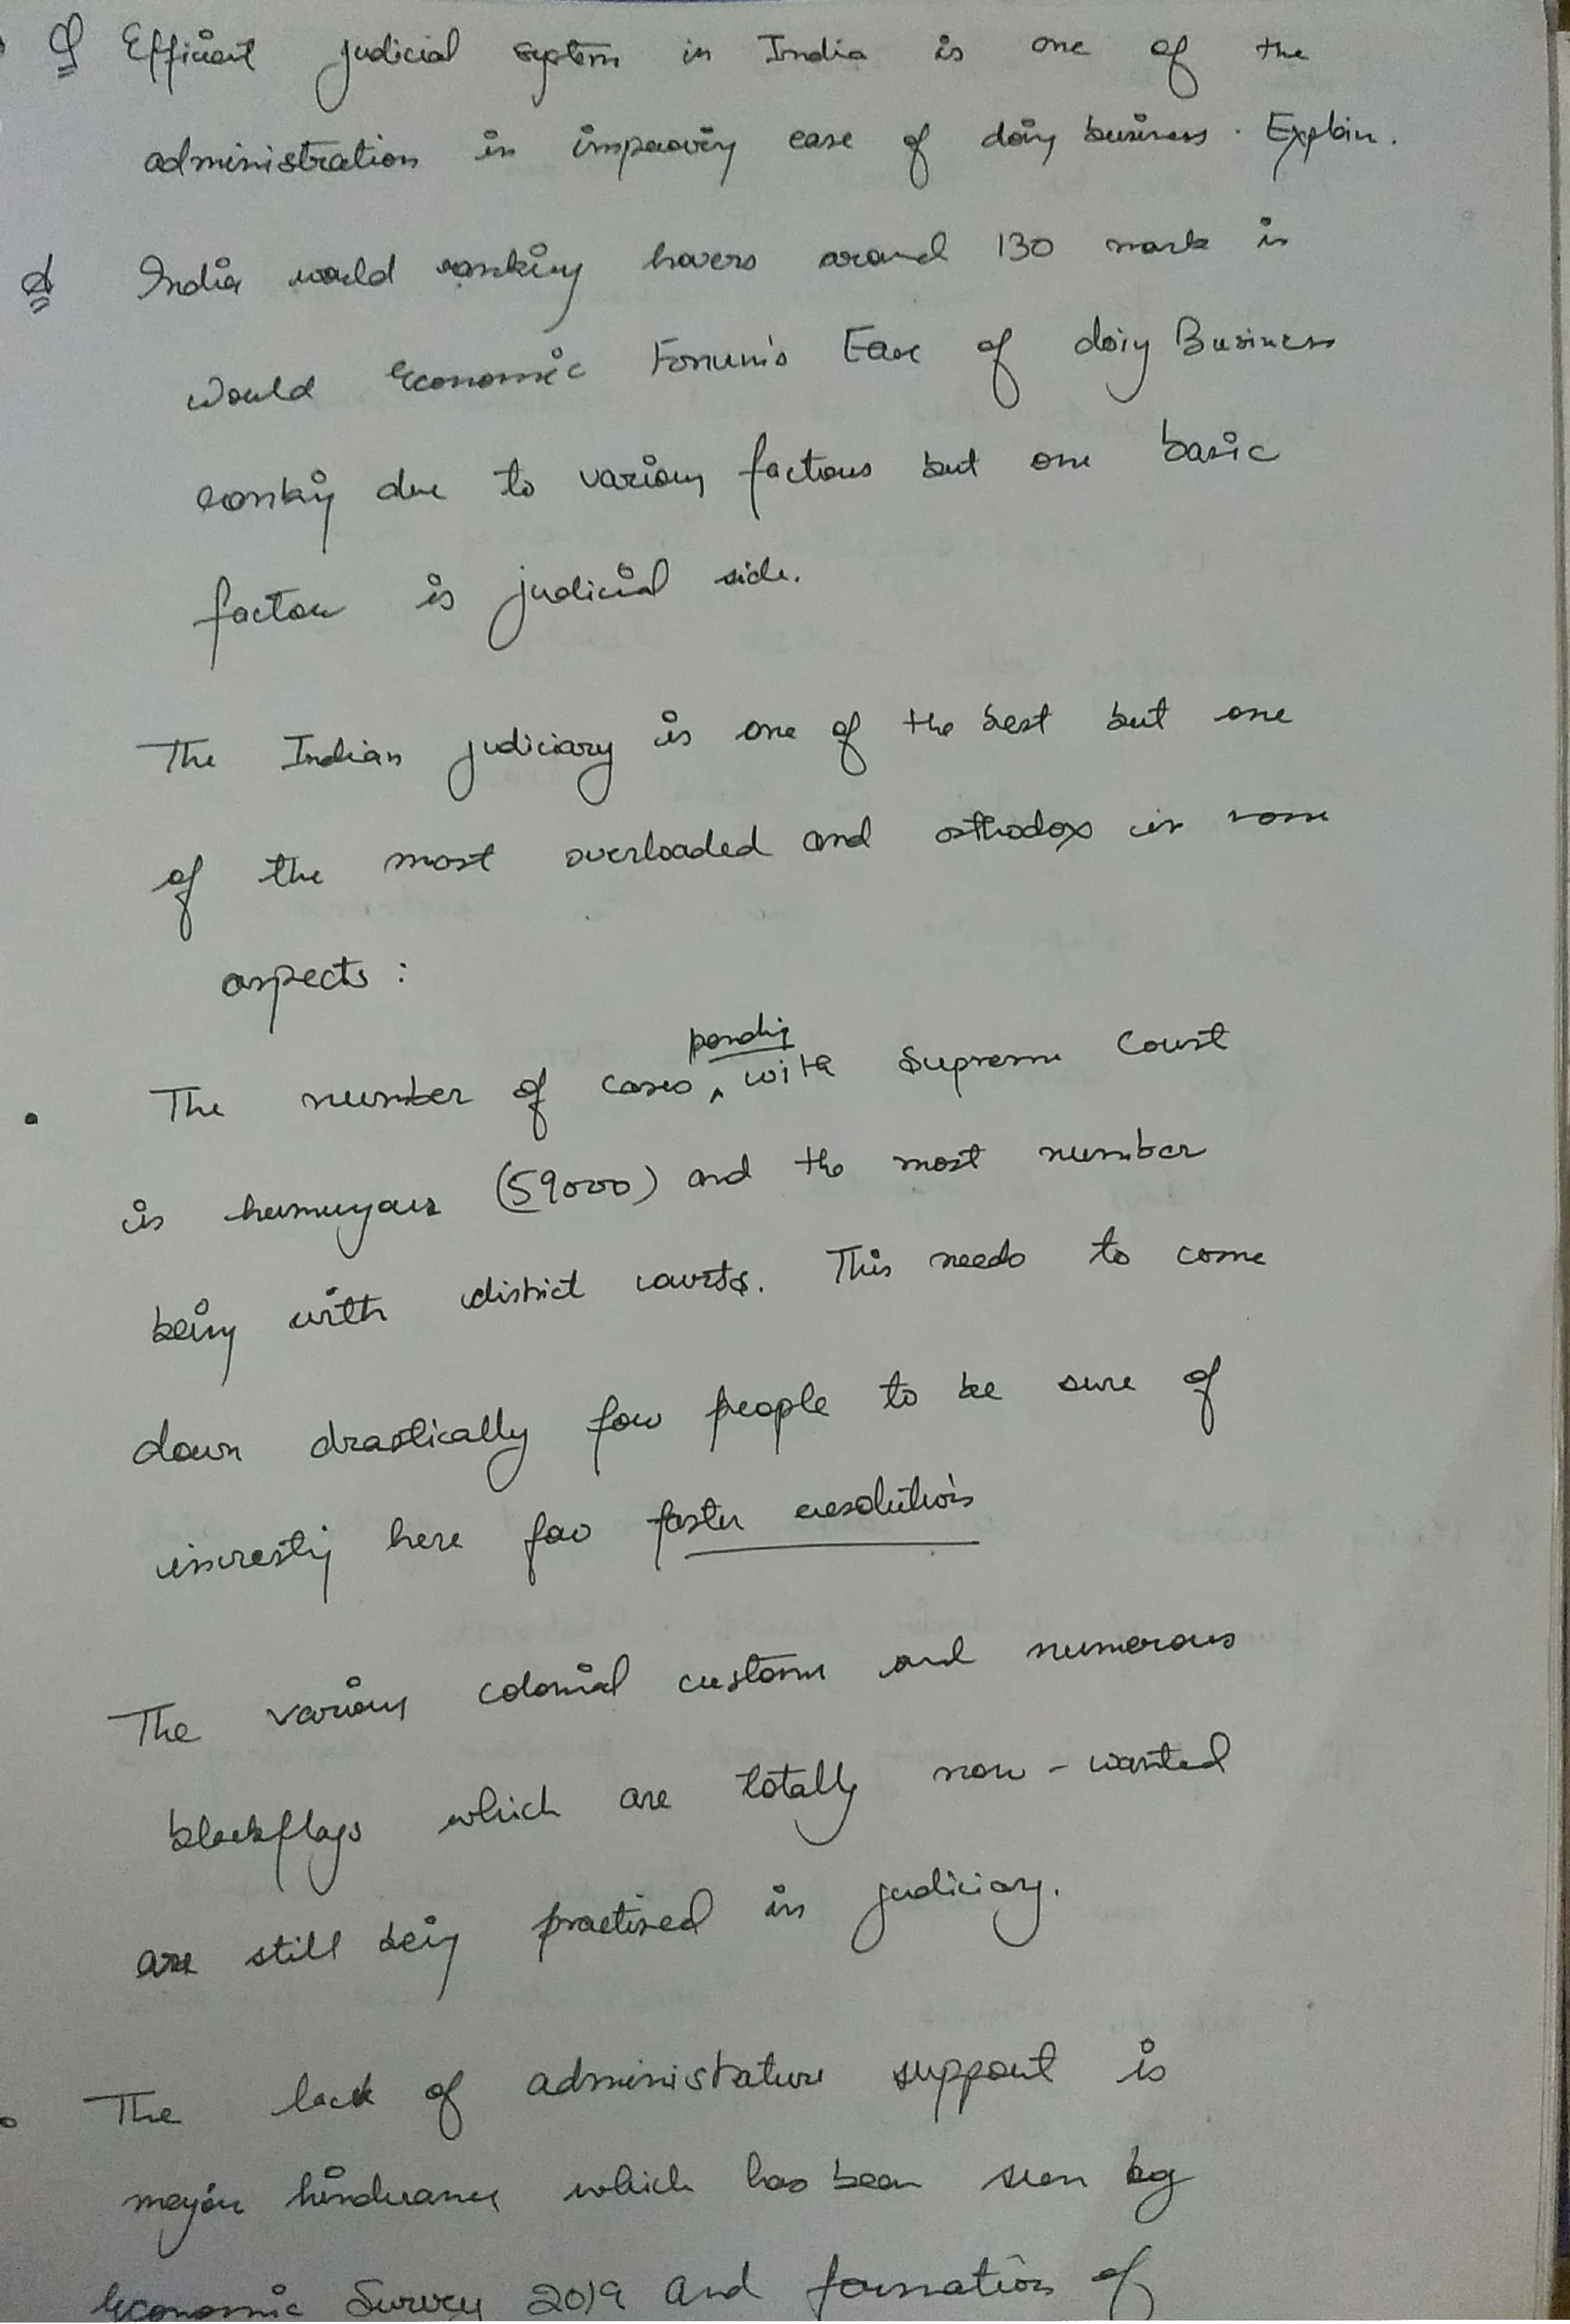 Q Efficient judicial system in India is one of the
administration in improving ease of doing business. Explain.
A India world ranking hovers around 130 mark in
World Economic Forum's Ease of doing Business
ranking due to various factors but one basic
factor is judicial side.
The Indian judiciary is one of the best but one
of the most overloaded and orthodox in some
aspects :
pending
• The number of cases ^ with Supreme Court
is (59000) and the most number
being with district courts. This needs to come
down drastically for people to be sure of
here for faster resolution
The various colonial customs and numerous
which are totally non-wanted
are still being practised in judiciary.
• The lack of administrative support is
major hinderance which has been seen by
Economic Survey 2019 and formation of